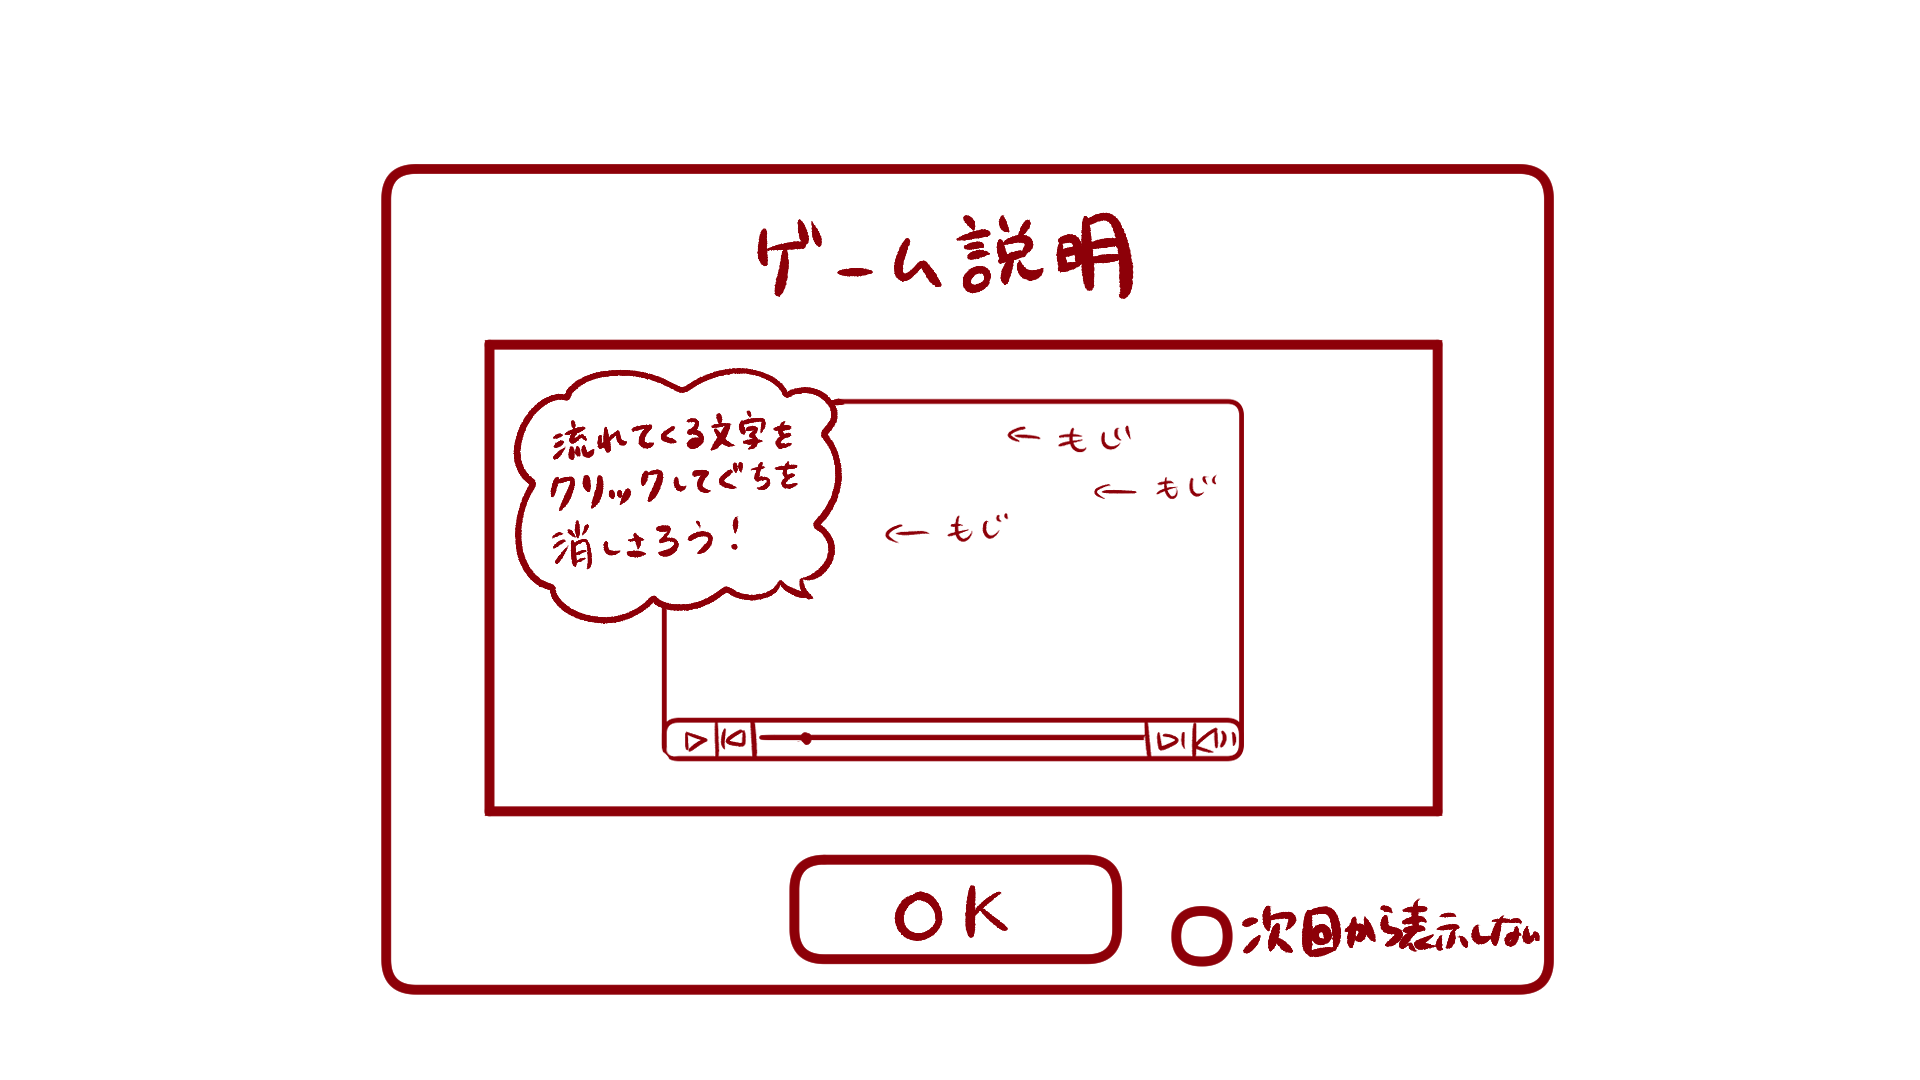 ゲーム説明
流れてくる文字を
クリックしてぐちを
消しさろう!
← もじ
← もじ
← もじ
OK
次回から表示しない